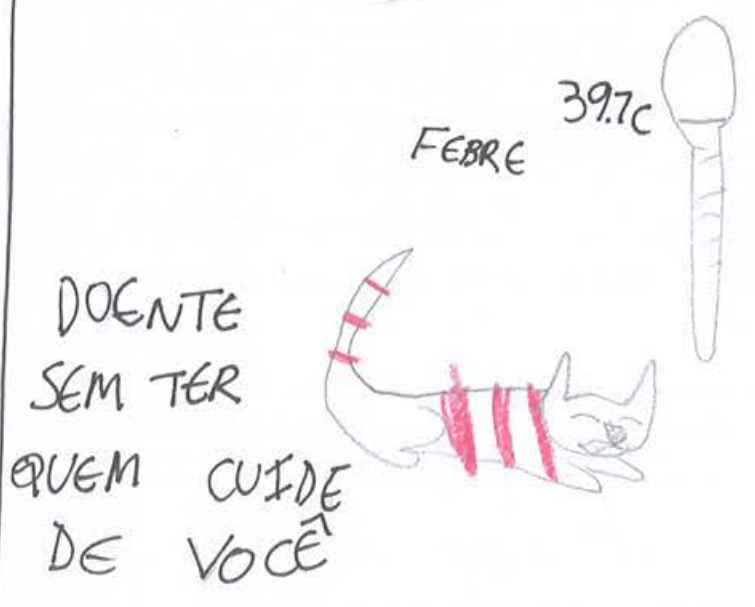 39.7C
FEBRE
DOENTE
SEM TER
QUEM CUIDE
DE VOCÊ